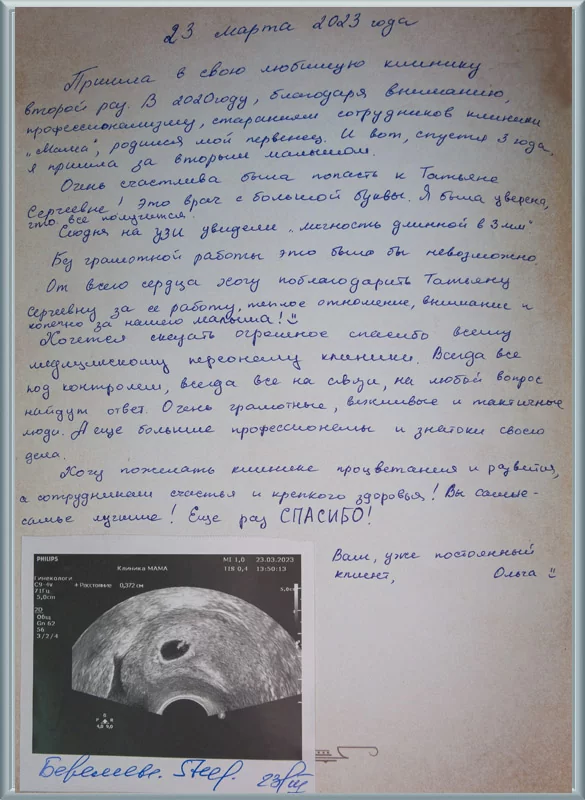 23 марта 2023 года
Пришла в свою любимую клинику
второй раз. В 2020 году, благодаря вниманию,
профессионализму, стараниям сотрудников клиники
„Мама", родился мой первенец. И вот, спустя 3 года,
я пришла за вторым малышом.
Очень счастлива была попасть к Татьяне
Сергеевне! Это врач с большой буквы. Я была уверена,
что все получится.
Сегодня на УЗИ увидели „личность длинной в 3 мм"
Без грамотной работы это было бы невозможно.
От всего сердца хочу поблагодарить Татьяну
Сергеевну за ее работу, теплое отношение, внимание и
конечно за нашего малыша!
Хочется сказать огромное спасибо всему
медицинскому персоналу клиники. Всегда все
под контролем, всегда все на связи, на любой вопрос
найдут ответ. Очень грамотные, вежливые и тактичные
люди. А еще большие профессионалы и знатоки своего
дела.
Хочу пожелать клинике процветания и развития,
а сотрудникам счастья и крепкого здоровья! Вы самые-
самые лучшие! Еще раз СПАСИБО!
Ваш, уже постоянный
клиент, Ольга
PHILIPS MI 1,0 23.03.2023
Клиника МАМА TIS 0,4 13:50:13
Гинекологи
C9-4v + Расстояние 0,372 см
71Гц
5,0cm
2D
Общ
Gn 62
56
3/2/4
P R
4,0 9,0